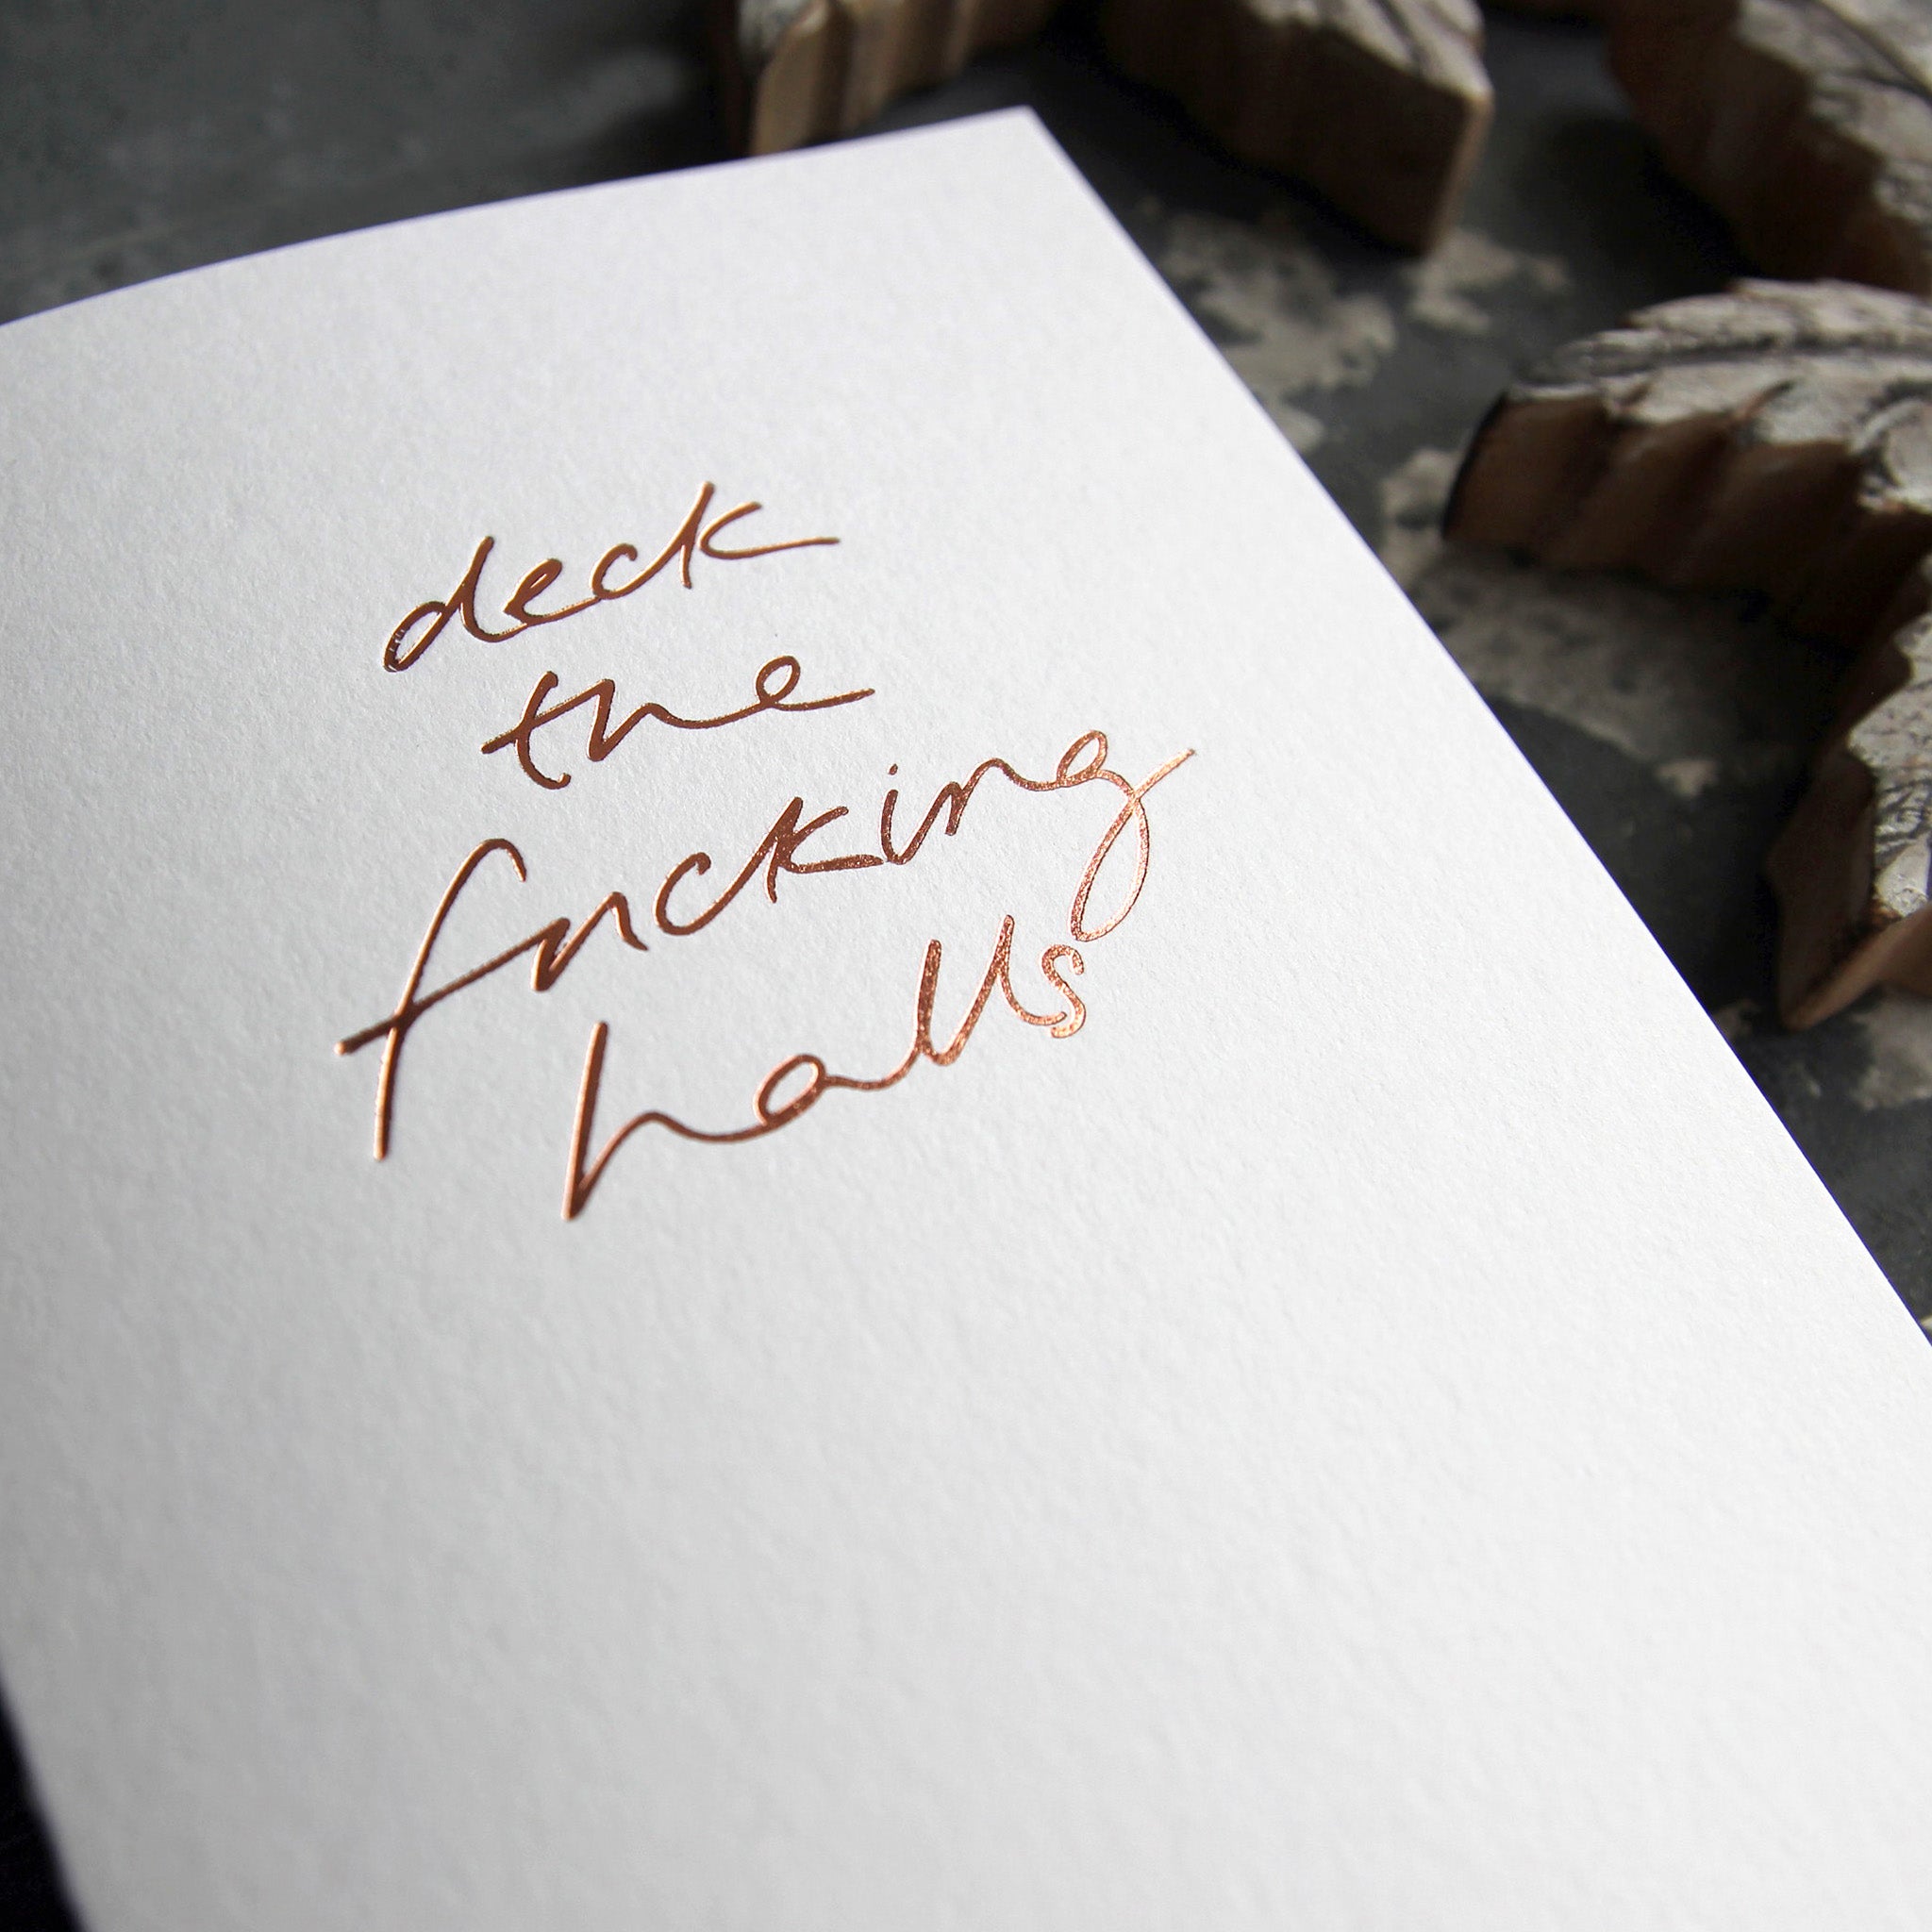 deck
the
fucking
halls